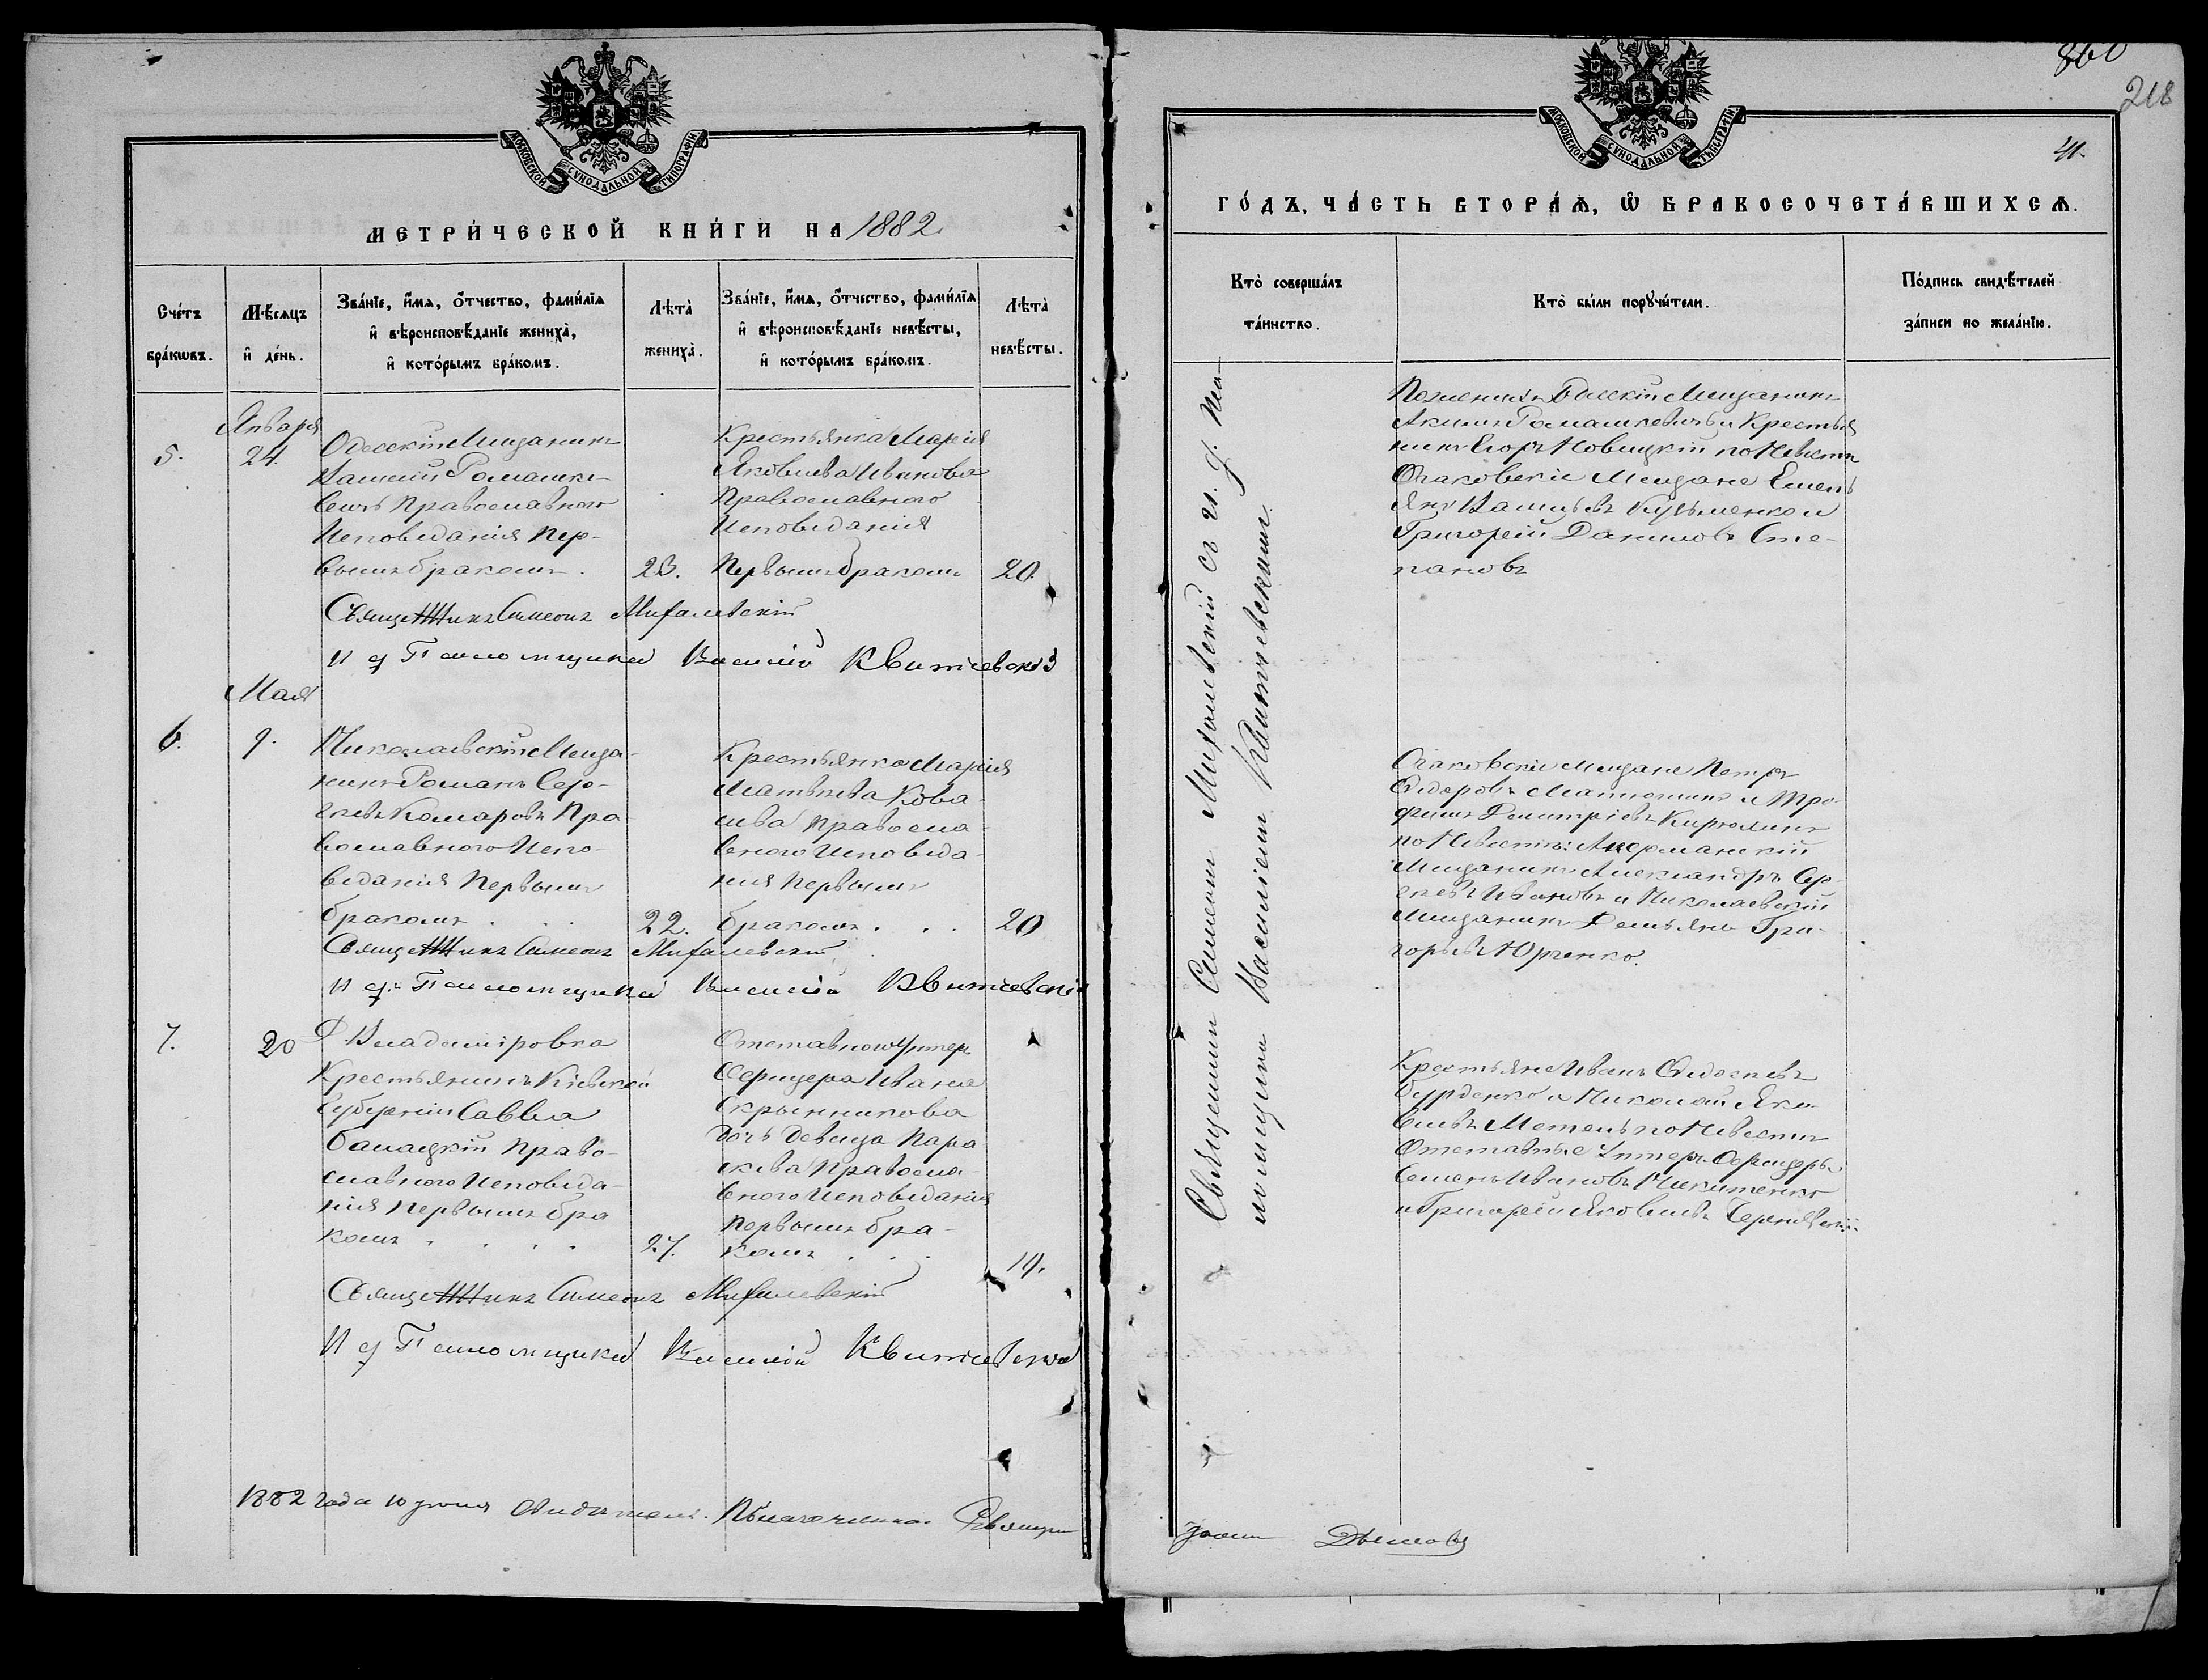 МОСКОВСКОЙ СѴНОДАЛЬНОЙ ТИПОГРАФІИ
МЕТРИ́ЧЕСКОЙ КНИ́ГИ НА 1882
Сче́тъ бра́кѡвъ.
Мѣ́сяцъ и҆ де́нь.
Зва́нїе, и҆́мѧ, ѻ҆́тчество, фами́лїѧ
и҆ вѣроисповѣ́данїе жениха̀,
и҆ кото́рымъ бра́комъ.
Лѣта̀ жениха̀.
Зва́нїе, и҆́мѧ, ѻ҆́тчество, фами́лїѧ
и҆ вѣроисповѣ́данїе невѣ́сты,
и҆ кото́рымъ бра́комъ.
Лѣта̀ невѣ́сты.
Января
5.
24.
Одесскій Мещанинъ
Василій Ромашке-
вичъ Православного
Исповѣданія Пер-
вымъ бракомъ.
23.
Крестьянка Марія
Яковлева Иванова
Православного
Исповѣданія
Первымъ бракомъ
20
Священникъ Симеонъ Михалевскій
И д Псаломщика Василій Квитчевскій
Мая
6.
9.
Николаевскій Меща-
нинъ Романъ Сер-
гѣевъ Комаровъ Пра-
вославного Испо-
вѣданія Первымъ
бракомъ . . .
22.
Крестьянка Марія
Матвѣева Кова-
лева Правосла-
вного Исповѣда-
нія Первымъ
бракомъ . . .
20
Священникъ Симеонъ Михалевскій
И д. Псаломщика Василій Квитчевскій
7.
20
Д. Владиміровка
Крестьянинъ Кіевской
Губерніи Савва
Правo-
славного Исповѣда-
нія Первымъ бра
комъ . . . .
27.
Отставного Унтеръ
Офицера Ивана
Скрынникова
дочь Девица Пара
скева Правосла-
вного Исповѣданія
Первымъ бра-
комъ . . .
19.
Священникъ Симеонъ Михалевскій
И д Псаломщика Василій Квитчевскій
1882 года 10 Благочинный
860
218
41.
МОСКОВСКОЙ СѴНОДАЛЬНОЙ ТИПОГРАФІИ
ГО́ДЪ, ЧА́СТЬ ВТОРА́Ѧ, Ѽ БРАКОСОЧЕТА́ВШИХСѦ.
Кто̀ соверша́лъ та́инство.
Кто̀ бы́ли порꙋчи́тели.
По́дпись свидѣ́телей за́писи по жела́нїю.
Священникъ Симеонъ Михалевскій съ и. д. Пса-
ломщика Василіемъ Квитчевскимъ.
По женихѣ Одесскій Мещанинъ
Акимъ Ромашкевичъ и Крестья
нинъ Егоръ Новицкій по Невѣстѣ
Очаковскіе Мещане Емель
янъ Васильевъ Кузьменко и
Григорій Даниловъ Сте-
пановъ
Очаковскіе мещане Петръ
Сидоровъ и Тро-
фимъ Димитріевъ
по Невѣстѣ: Акерманскій
Мещанинъ Александръ Сер-
гѣевъ Ивановъ и Николаевскій
Мещанинъ Демьянъ Гри-
горьевъ Юрченко.
Крестьяне Иванъ
Бурденко и Николай Яко-
влевъ по Невѣстѣ
Отставные Унтеръ-Офицеры
Семенъ Ивановъ Никитенко
и Григорій Яковлевъ